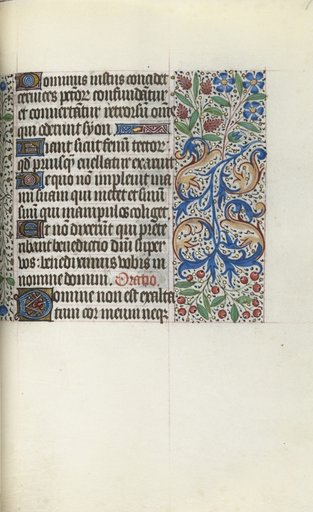 Dominus iustus concidet
cervices peccatorum confundantur
et convertantur retrorsum omnes
qui oderunt syon
Fiant sicut fenum tectorum
quod priusquam evellatur exaruit
De quo non implevit ma
num suam qui metet et sinum
suum qui manipulos colliget
Et non dixerunt qui prete
ribant benedictio domini super
vos: benediximus vobis in
nomine domini. Oratio
Domine non est exalta
tum cor meum neque